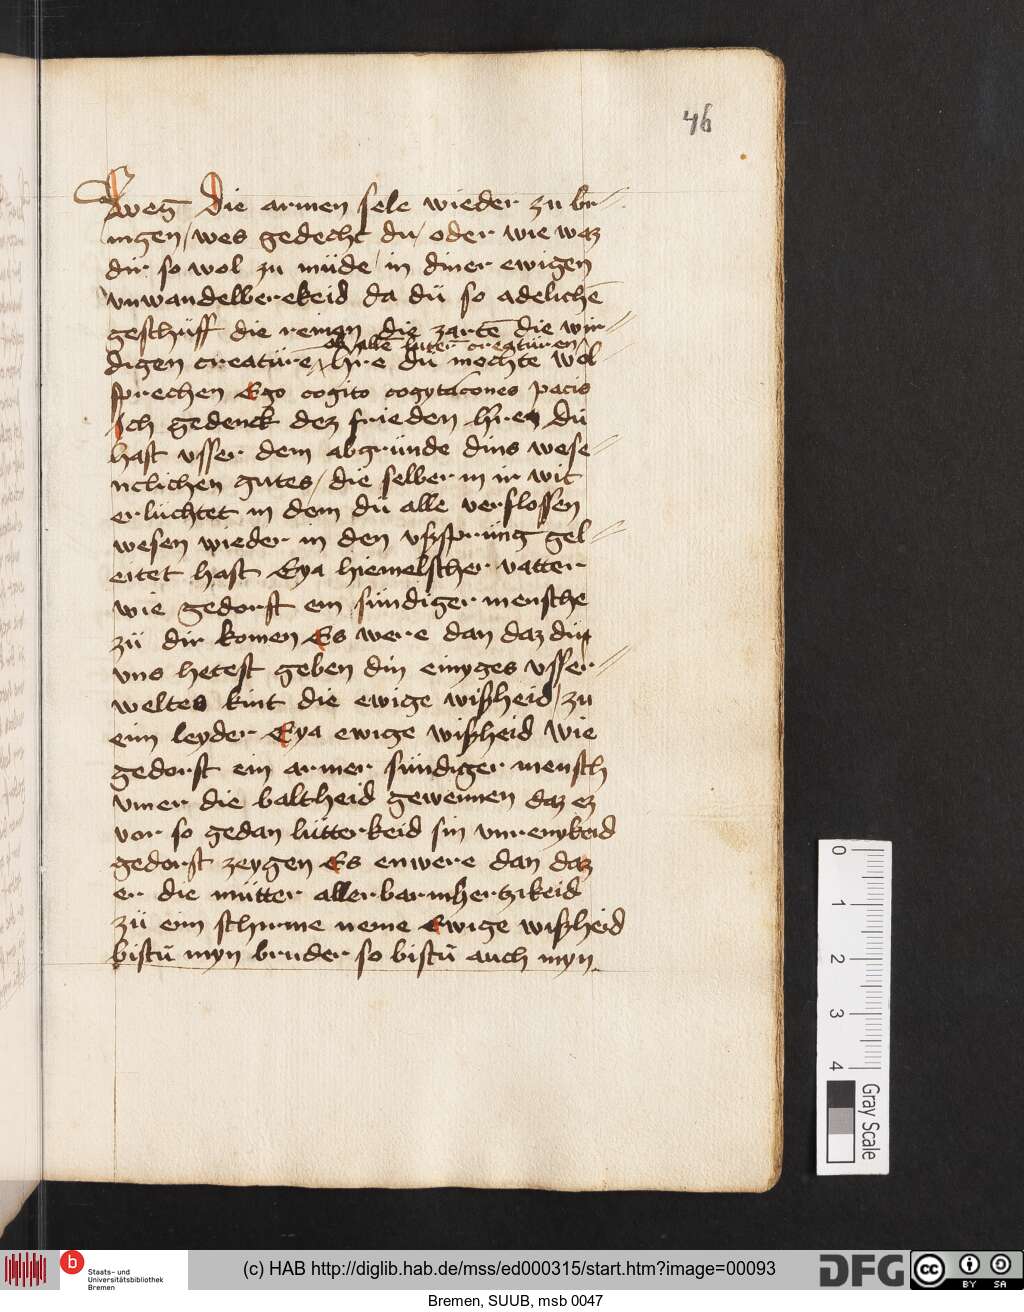 46
weg Die armen sele wieder zu br=
ingen / wes gedecht du / oder wie waz
dir so wol zu müde / in diner ewigen
vnwandelberekeid da dü so adelichē
geschüff die reinen die zartē die wir=
ob allē luter creatüren
digen creatüre / hre dü mochte wol
sprechen Ego cogito cogytacones pacis
Ich gedenck dez frieden hren Dü
hast vsser dem abgründe dins wese=
nclichen gutes / die selber in ir wit
erlüchtet in dem dü alle verflossen
wesen wieder in den vßsprüng gel=
eitet hast Eya hiemelscher vatter
wie gedorst ein sündiger mensche
zü dir komen Es were dan daz dü
vns hetest geben din einyges vsser=
weltes kint die ewige wißheid / zu
eim leyder Eya ewige wißheid wie
gedorst ein armer sündiger mensch
vmer die baltheid gewennen daz ez
vor so gedan lütterkeid sin vnreynkeid
gedorst zeygen Es enwere dan daz
er die mütter aller barmhertzikeid
zü eim schirme neme Ewige wißheid
bistü myn bruder so bistü auch myn
0 1 2 3 4
Gray Scale
b
Staats- und
Universitätsbibliothek
Bremen
(c) HAB http://diglib.hab.de/mss/ed000315/start.htm?image=00093
DFG
cc BY SA
Bremen, SUUB, msb 0047